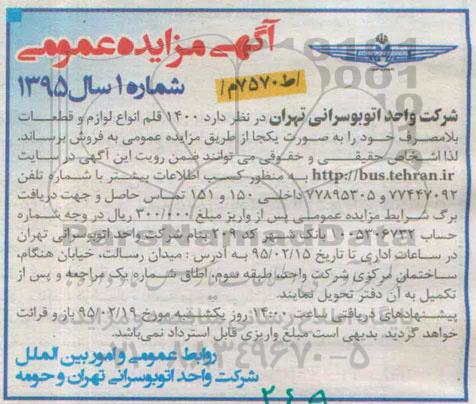 آگهی مزایده عمومی
شماره ۱ سال ۱۳۹۵
/ط۷۵۷۰م/
شرکت واحد اتوبوسرانی تهران در نظر دارد ۱۴۰۰ قلم انواع لوازم و قطعات
بلامصرف خود را به صورت یکجا از طریق مزایده عمومی به فروش برساند.
لذا اشخاص حقیقی و حقوقی می توانند ضمن رویت این آگهی در سایت
http://bus.tehran.ir به منظور کسب اطلاعات بیشتر با شماره تلفن
۷۷۴۴۷۰۹۲ و ۷۷۸۹۵۳۰۵ داخلی ۱۵۰ و ۱۵۱ تماس حاصل و جهت دریافت
برگ شرایط مزایده عمومی پس از واریز مبلغ ۳۰۰/۰۰۰ ریال در وجه شماره
حساب ۱۰۰۵۳۰۶۷۳۲ بانک شهر کد ۲۰۹ بنام شرکت واحد اتوبوسرانی تهران
در ساعات اداری تا تاریخ ۹۵/۰۲/۱۵ به آدرس : میدان رسالت، خیابان هنگام،
ساختمان مرکزی شرکت واحد، طبقه سوم، اطاق شماره یک مراجعه و پس از
تکمیل به آن دفتر تحویل نمایند.
پیشنهادهای دریافتی ساعت ۱۴:۰۰ روز یکشنبه مورخ ۹۵/۰۲/۱۹ باز و قرائت
خواهد گردید. بدیهی است مبلغ واریزی قابل استرداد نمی‌باشد.
روابط عمومی و امور بین الملل
شرکت واحد اتوبوسرانی تهران و حومه
ParsNamadData
۲۶۹